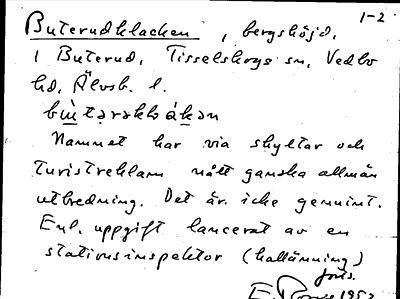 1-2
Buterudklacken, bergshöjd,
i Buterud, Tisselskogs sn, Vedbo
hd, Älvsb. l.
Namnet har via skyltar och
turistreklam nått ganska allmän
utbredning. Det är icke genuint.
Enl. uppgift lancerat av en
stationsinspektor (hallänning)
forts.
1952